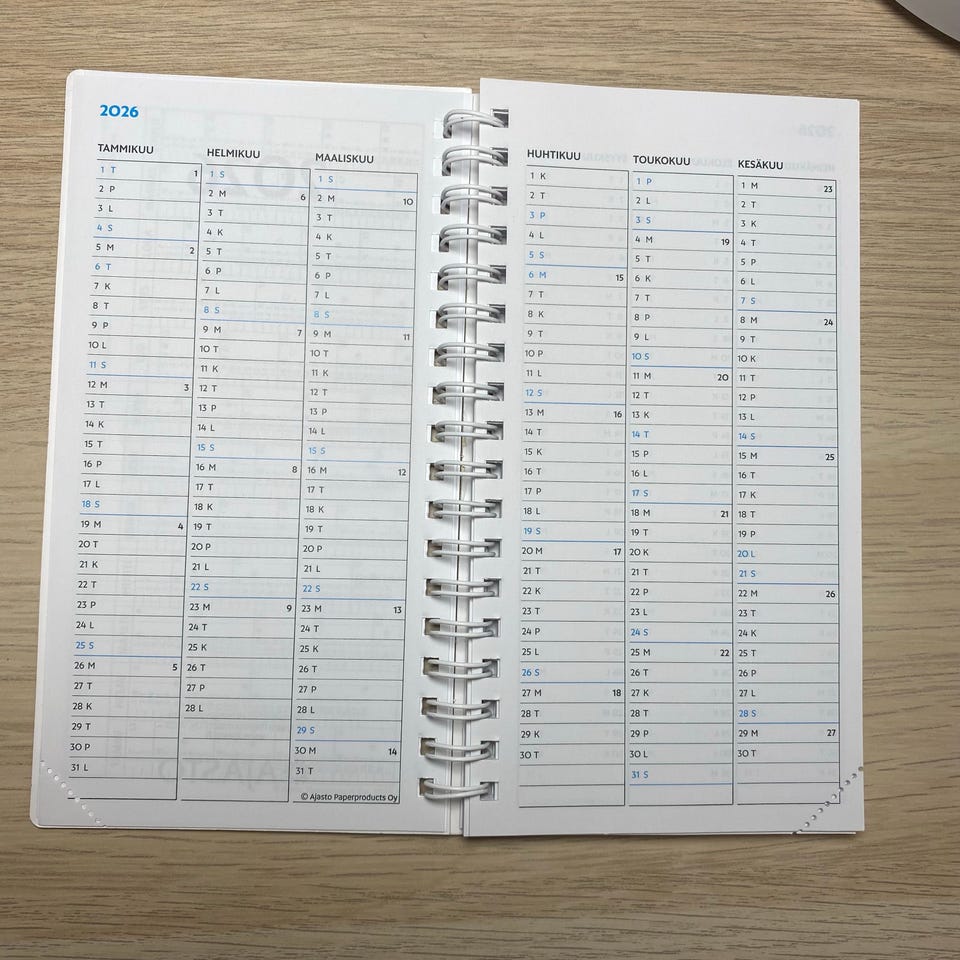 2026
TAMMIKUU
1 T 1
2 P
3 L
4 S
5 M 2
6 T
7 K
8 T
9 P
10 L
11 S
12 M 3
13 T
14 K
15 T
16 P
17 L
18 S
19 M 4
20 T
21 K
22 T
23 P
24 L
25 S
26 M 5
27 T
28 K
29 T
30 P
31 L
HELMIKUU
1 S
2 M 6
3 T
4 K
5 T
6 P
7 L
8 S
9 M 7
10 T
11 K
12 T
13 P
14 L
15 S
16 M 8
17 T
18 K
19 T
20 P
21 L
22 S
23 M 9
24 T
25 K
26 T
27 P
28 L
MAALISKUU
1 S
2 M 10
3 T
4 K
5 T
6 P
7 L
8 S
9 M 11
10 T
11 K
12 T
13 P
14 L
15 S
16 M 12
17 T
18 K
19 T
20 P
21 L
22 S
23 M 13
24 T
25 K
26 T
27 P
28 L
29 S
30 M 14
31 T
© Ajasto Paperproducts Oy
HUHTIKUU
1 K
2 T
3 P
4 L
5 S
6 M 15
7 T
8 K
9 T
10 P
11 L
12 S
13 M 16
14 T
15 K
16 T
17 P
18 L
19 S
20 M 17
21 T
22 K
23 T
24 P
25 L
26 S
27 M 18
28 T
29 K
30 T
TOUKOKUU
1 P
2 L
3 S
4 M 19
5 T
6 K
7 T
8 P
9 L
10 S
11 M 20
12 T
13 K
14 T
15 P
16 L
17 S
18 M 21
19 T
20 K
21 T
22 P
23 L
24 S
25 M 22
26 T
27 K
28 T
29 P
30 L
31 S
KESÄKUU
1 M 23
2 T
3 K
4 T
5 P
6 L
7 S
8 M 24
9 T
10 K
11 T
12 P
13 L
14 S
15 M 25
16 T
17 K
18 T
19 P
20 L
21 S
22 M 26
23 T
24 K
25 T
26 P
27 L
28 S
29 M 27
30 T